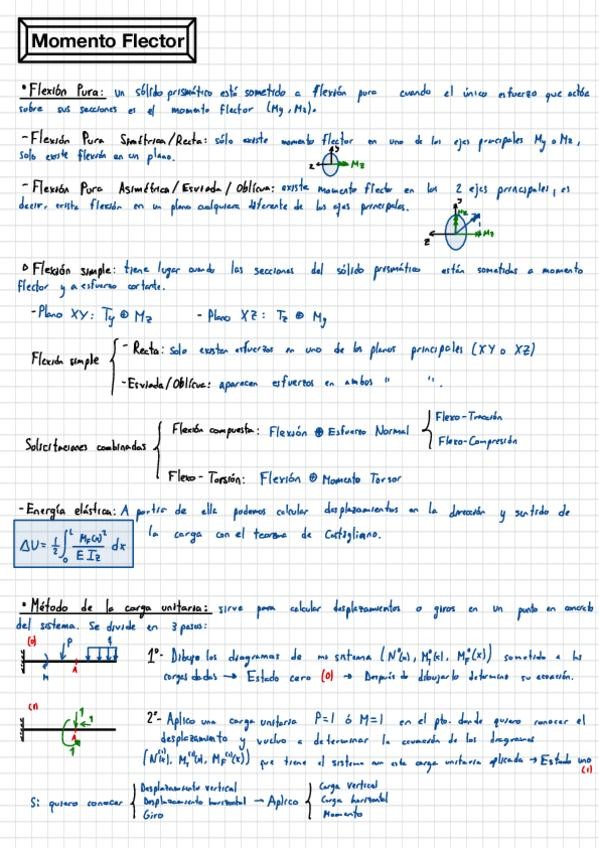 Momento Flector
• Flexión Pura: un sólido prismático está sometido a flexión pura cuando el único esfuerzo que actúa
sobre sus secciones es el momento flector (My, Mz).
- Flexión Pura Simétrica/Recta: sólo existe momento flector en uno de los ejes principales My o Mz,
solo existe flexión en un plano.
y
z
Mz
- Flexión Pura Asimétrica/Esviada/Oblicua: existe momento flector en los 2 ejes principales, es
decir, existe flexión en un plano cualquiera diferente de los ejes principales.
y
z
Mz
Flexión simple: tiene lugar cuando las secciones del sólido prismático están sometidas a momento
flector y a esfuerzo cortante.
- Plano XY: Ty ⊕ Mz - Plano XZ: Tz ⊕ My
Flexión simple
- Recta: solo existen esfuerzos en uno de los planos principales (XY o XZ)
- Esviada/Oblicua: aparecen esfuerzos en ambos " ".
Solicitaciones combinadas
Flexión compuesta: Flexión ⊕ Esfuerzo Normal
Flexo-Tracción
Flexo-Compresión
Flexo-Torsión: Flexión ⊕ Momento Torsor
- Energía elástica: A partir de ella podemos calcular desplazamientos en la dirección y sentido de
la carga con el teorema de Castigliano.
ΔU = 1/2 ∫₀ᴸ MF(x)²/(E Iz) dx
• Método de la carga unitaria: sirve para calcular desplazamientos o giros en un punto en concreto
del sistema. Se divide en 3 pasos:
(0)
P
q
M
A
1º- Dibujo los diagramas de mi sistema (N⁰(x), MT⁰(x), MF⁰(x)) sometido a las
cargas dadas → Estado cero (0) → Después de dibujarlo determino su ecuación.
(1)
1
1
A
1
2º- Aplico una carga unitaria P=1 ó M=1 en el pto. donde quiero conocer el
desplazamiento y vuelvo a determinar la ecuación de los diagramas
(N⁽¹⁾(x), MT⁽¹⁾(x), MF⁽¹⁾(x)) que tiene el sistema con esta carga unitaria aplicada → Estado uno
(1)
Si quiero conocer
Desplazamiento vertical
Desplazamiento horizontal
Giro
→ Aplico
Carga vertical
Carga horizontal
Momento